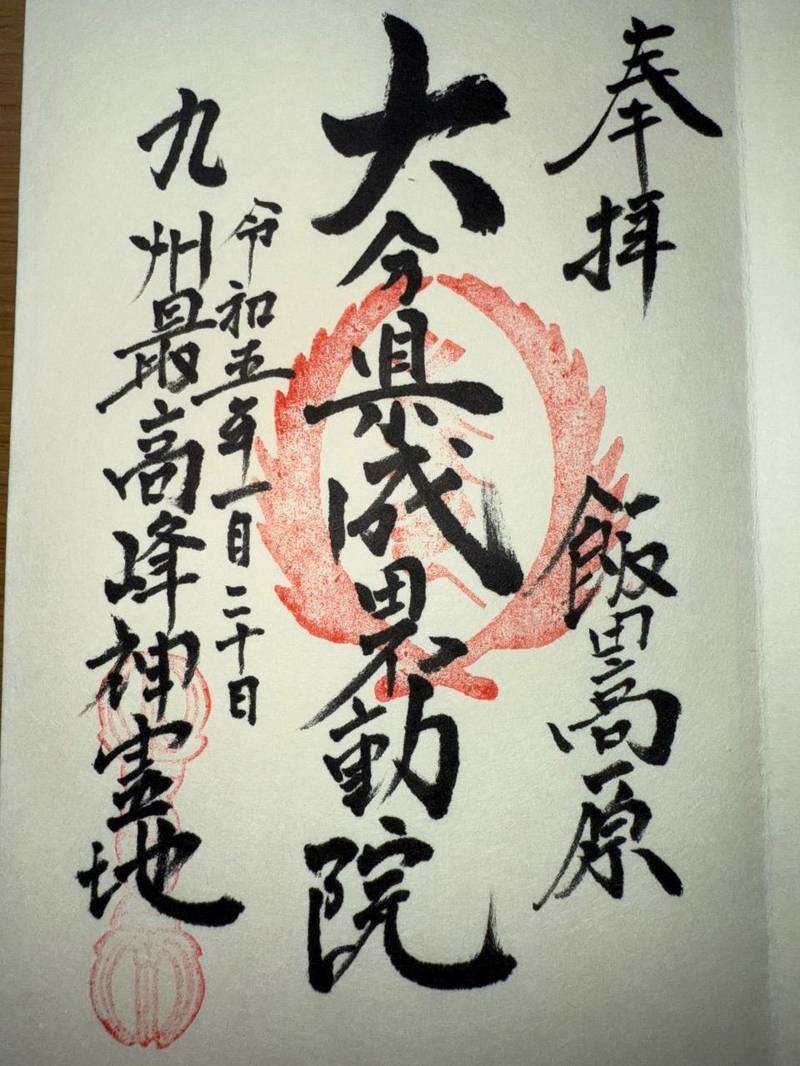 奉拝　飯田高原
大分県成田不動院
令和五年一月二十日
九州最高峰神霊地